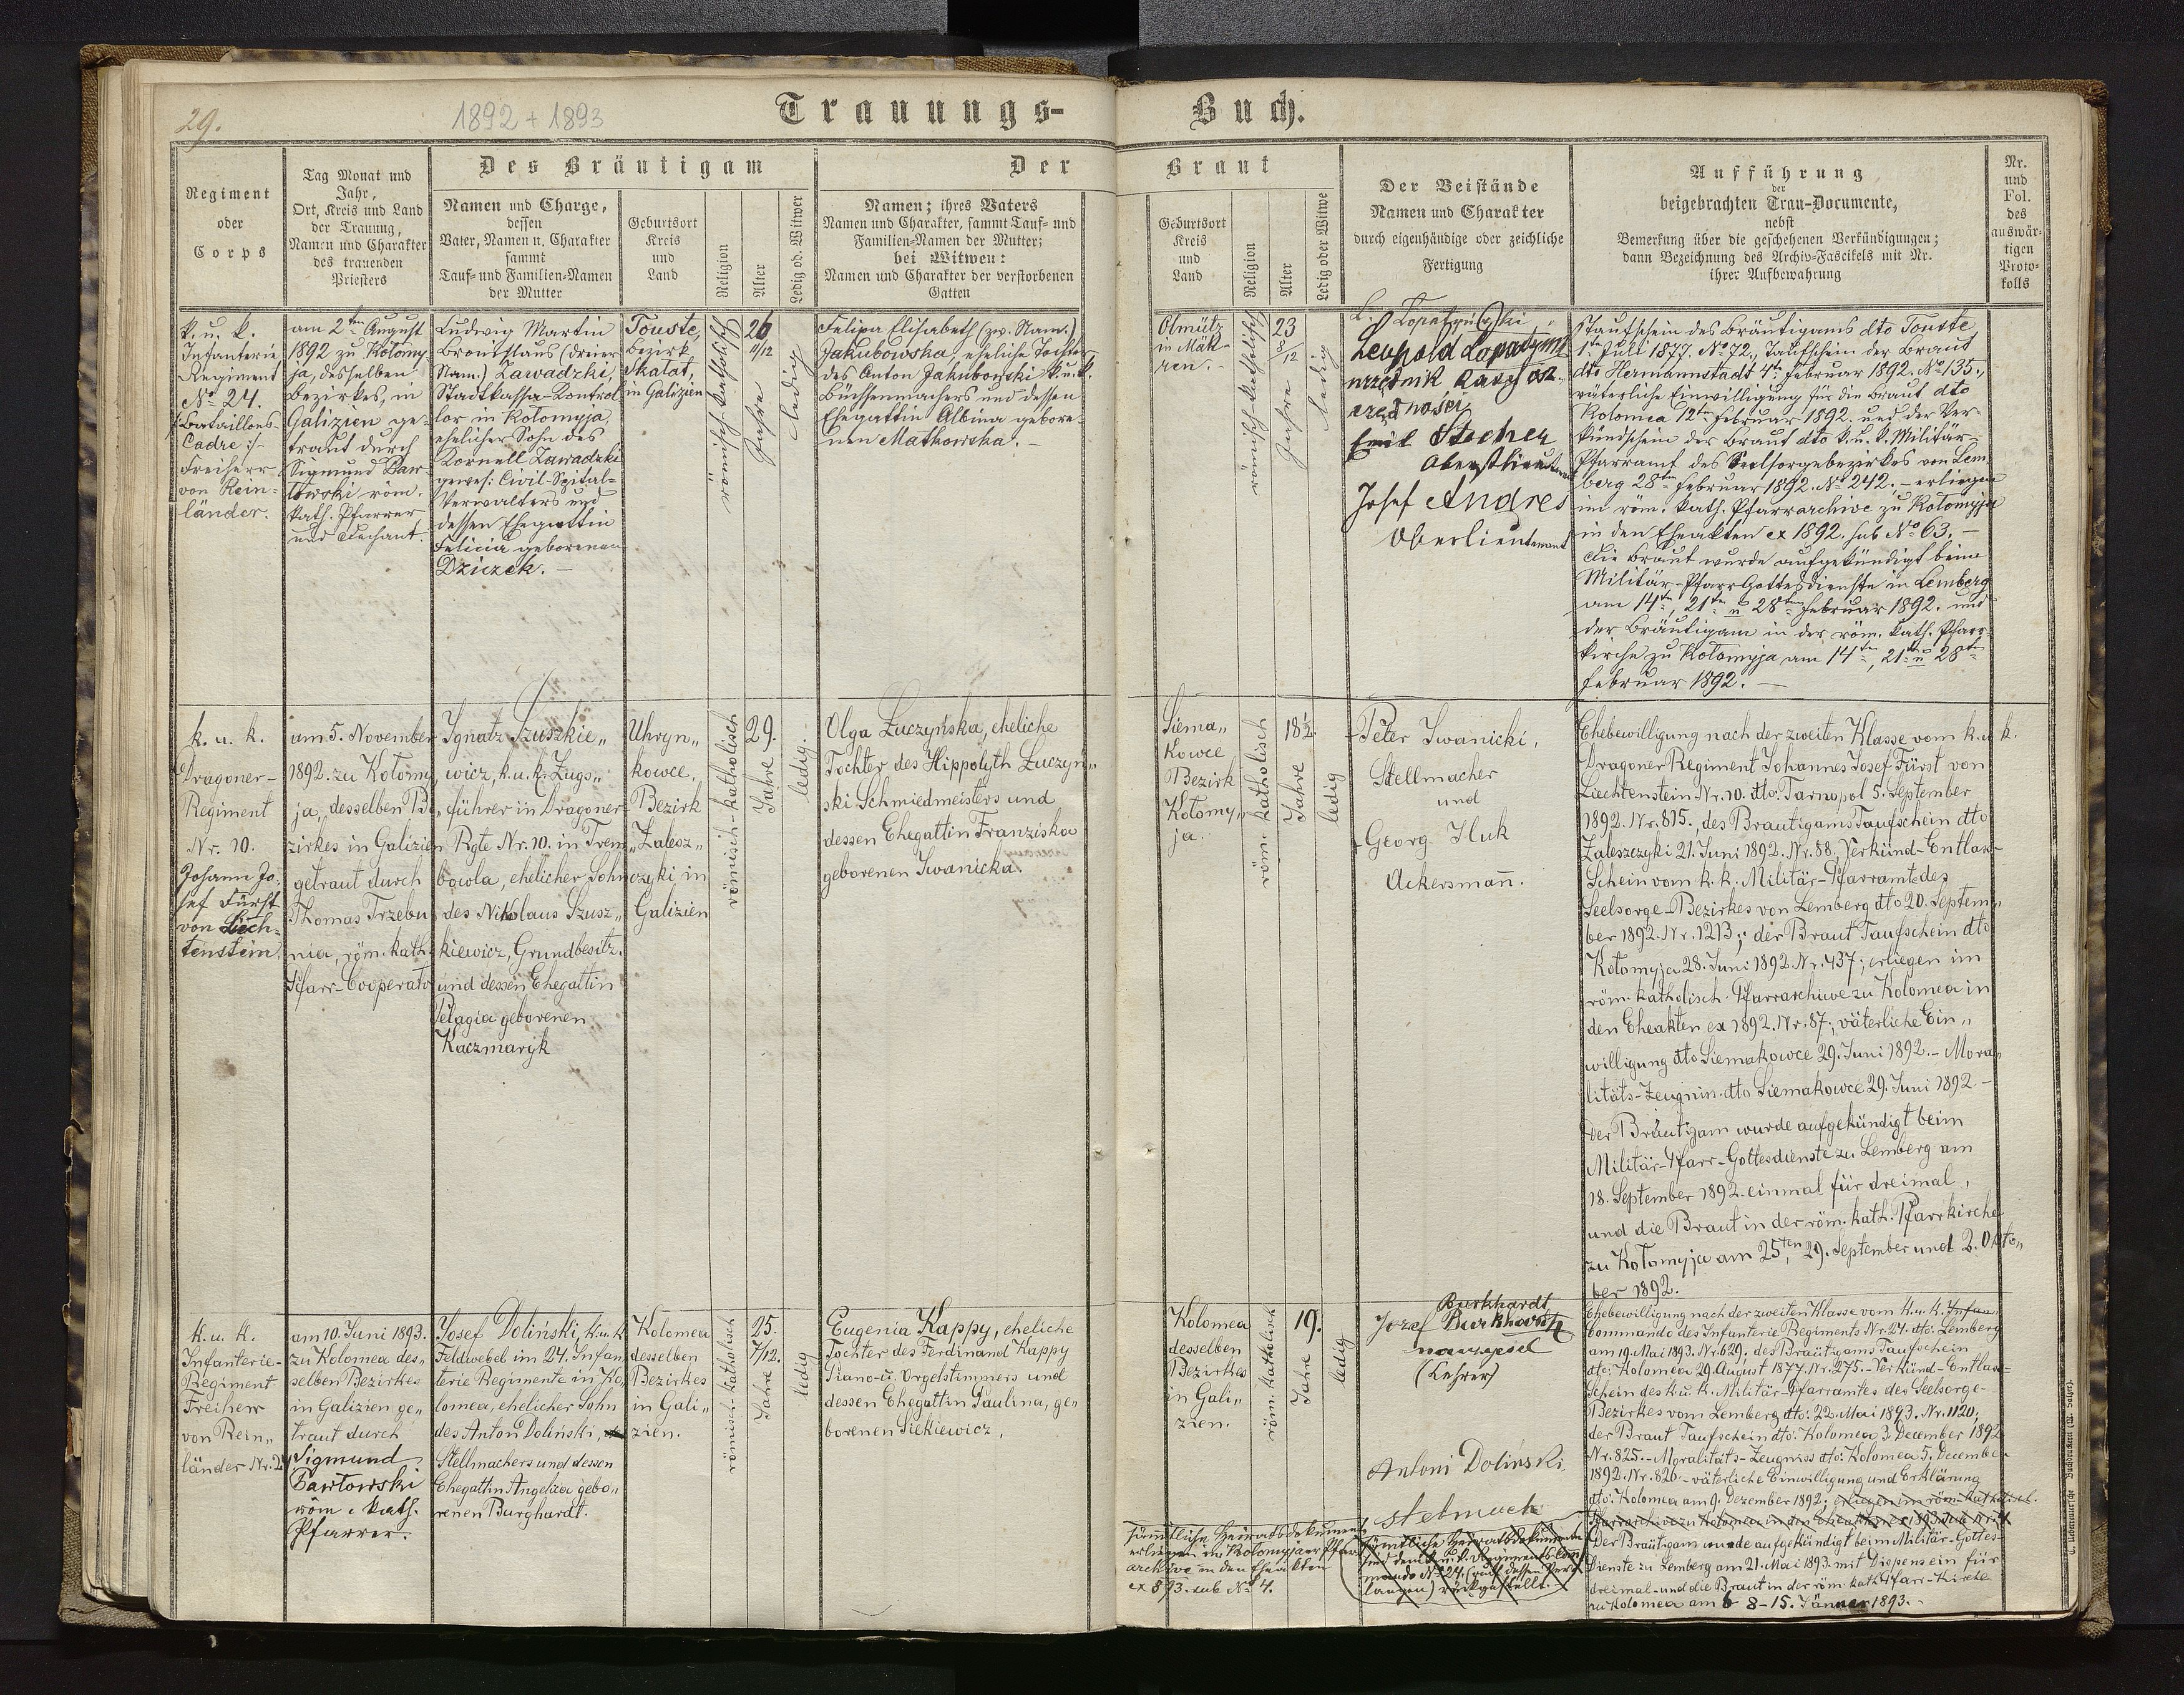 29.
1892 + 1893
Trauungs-
Buch.
Regiment
oder
Corps
Tag Monat und
Jahr,
Ort, Kreis und Land
der Trauung,
Namen und Charakter
des trauenden
Priesters
Des Bräutigam
Namen und Charge,
dessen
Vater, Namen u. Charakter
sammt
Tauf- und Familien-Namen
der Mutter
Geburtsort
Kreis
und
Land
Religion
Alter
Ledig od. Witwer
Der
Namen; ihres Vaters
Namen und Charakter, sammt Tauf- und
Familien-Namen der Mutter;
bei Witwen:
Namen und Charakter der verstorbenen
Gatten
Braut
Geburtsort
Kreis
und
Land
Religion
Alter
Ledig oder Witwe
Der Beistände
Namen und Charakter
durch eigenhändige oder zeichliche
Fertigung
Aufführung
der
beigebrachten Trau-Documente,
nebst
Bemerkung über die geschehenen Verkündigungen;
dann Bezeichnung des Archiv-Fascikels mit Nr.
ihrer Aufbewahrung
Nr.
und
Fol.
des
auswär-
tigen
Proto-
kolls
k. u. k.
Infanterie
Regiment
No 24.
/:Bataillons-
Cadre:/
Freiherr
von Rein-
länder.
am 2ten August
1892 zu Kołomy-
ja, desselben
Bezirkes, in
Galizien ge-
traut durch
Sigmund Paw-
łowski röm.
kath. Pfarrer
und Dechant.
Ludwig Martin
Bronislaus (dreier
Nam.) Zawadzki,
Stadtkassa-Kontrol-
lor in Kołomyja,
ehelicher Sohn des
Kornell Zawadzki
gewes: Civil-Spital-
Verwalters und
dessen Ehegattin
Felicia geborenen
Dziczek. -
Touste,
Bezirk
Skałat,
in Galizien
römisch-katholisch
26
11/12
Jahre
ledig
Felixa Elisabeth (zw. Nam:)
Jakubowska, eheliche Tochter
des Anton Jakubowski k.u.k.
Büchsenmachers und dessen
Ehegattin Albina gebore-
nen Matkowska. -
Olmütz
in Mäh-
ren. -
römisch-katholisch
23
Jahre
ledig
Leopold Lopatyński
urzędnik kasy osz-
czędności
Emil Stecher
Oberstlieutenant
Josef Andres
Oberlieutenant
Taufschein des Bräutigams dto Touste
1ten Juli 1877. No 72., Taufschein der Braut
dto Hermannstadt 4ten Februar 1892. No 135.,
väterliche Einwilligung für die Braut dto
Kolomea 12ten Februar 1892. und der Ver-
kündschein der Braut dto k. u. k. Militär-
Pfarramt des Seelsorgebezirkes von Lem-
berg 28ten Februar 1892. No 242. - erliegen
im röm. kath. Pfarrarchive zu Kołomyja
in den Eheakten ex 1892. sub No 63. -
Die Braut wurde aufgekündigt beim
Militär-Pfarr-Gottesdienste in Lemberg
am 14ten, 21ten u 28ten Februar 1892. und
der Bräutigam in der röm. kath. Pfarr-
kirche zu Kołomyja am 14ten, 21ten u 28ten
Februar 1892. -
k. u. k.
Dragoner-
Regiment
Nr. 10.
Johann Jo-
sef Fürst
von Liech-
tenstein.
am 5. November
1892. zu Kołomy
ja, desselben Be
zirkes in Galizien
getraut durch
Thomas Trzebu
nia, röm. kath.
Pfarr-Cooperato
Ignatz Szuszkie„
wicz, k.u.k. Zugs„
führer in Dragoner
Rgte Nr. 10. in Trem„
bowla, ehelicher Sohn
des Nikolaus Szusz„
kiewicz, Grundbesitz.
und dessen Ehegattin
Pelagia geborenen
Kaczmaryk
Uhryn„
kowce,
Bezirk
Zalesz„
czyki in
Galizien
römisch-katholisch
29.
Jahre
ledig.
Olga Łuczyńska, eheliche
Tochter des Hippolyth Łuczyń„
ski Schmiedmeisters und
dessen Ehegattin Franziska
geborenen Iwanicka.
Siema„
kowce
Bezirk
Kołomy„
ja.
röm. katholisch
18 1/2.
Jahre
ledig
Peter Iwanicki,
Stellmacher
und
Georg Huk
Ackersmann.
Ehebewilligung nach der zweiten Klasse vom k. u. k.
Dragoner Regiment Johannes Josef Fürst von
Liechtenstein Nr. 10. dto: Tarnopol 5. September
1892. Nr. 815., des Bräutigams Taufschein dto
Zaleszczyki 21. Juni 1892. Nr. 88. Verkünd-Entlass-
Schein vom k. k. Militär-Pfarramte des
Seelsorge-Bezirkes von Lemberg dto 20. Septem„
ber 1892. Nr. 1213; der Braut Taufschein dto
Kołomyja 28. Juni 1892. Nr. 437; erliegen im
röm. katholisch. Pfarrarchive zu Kolomea in
den Eheakten ex 1892. Nr. 87; väterliche Ein„
willigung dto Siemakowce 29. Juni 1892. - Mora„
litäts-Zeugnin. dto Siemakowce 29. Juni 1892. -
Der Bräutigam wurde aufgekündigt beim
Militär-Pfarr-Gottesdienste zu Lemberg am
18. September 1892. einmal für dreimal,
und die Braut in der röm. kath. Pfarrkirche
zu Kołomyja am 25ten, 29. September und 2. Okto„
ber 1892.
K. u. K.
Infanterie-
Regiment
Freiherr
von Rein„
länder Nr. 24
am 10. Juni 1893.
zu Kolomea des„
selben Bezirkes
in Galizien ge„
traut durch
Sigmund
Pawłowski
röm. kath.
Pfarrer.
Josef Doliński, k.u.k
Feldwebel im 24. Infan„
terie Regimente in Ko„
lomea, ehelicher Sohn
des Anton Doliński,
Stellmachers und dessen
Ehegattin Angelica gebo„
renen Burghardt.
Kolomea
desselben
Bezirkes
in Gali„
zien.
römisch-katholisch
25.
7/12.
Jahre
ledig
Eugenia Kappy, eheliche
Tochter des Ferdinand Kappy
Piano-u. Orgelstimmers und
dessen Ehegattin Paulina, ge„
borenen Siekiewicz.
Kolomea
desselben
Bezirkes
in Gali„
zien.
röm. katholisch
19.
Jahre
ledig
Burkhardt
Jozef Burkhardt
nauczyciel
(Lehrer)
Antoni Doliński
stelmach
Sämtliche Heiratsdokumente
erliegen im Kolomyjaer Pfarr
archive in den Eheakten
ex 893. sub No 4.
Sämtliche Heiratsdokumente
sind dem k. u. k. Regiments Com
mando No 24. (auf dessen Ver-
langen) rückgestellt. -
Ehebewilligung nach der zweiten Klasse vom K. u. K. Infan.
Commando des Infanterie Regiments Nr. 24. dto: Lemberg
am 19. Mai 1893. Nr. 629. des Bräutigams Taufschein
dto: Kolomea 29. August 1877. Nr. 275. - Verkünd-Entlass-
Schein des k. u. k. Militär-Pfarramtes des Seelsorge-
Bezirkes vom Lemberg dto: 22. Mai 1893. Nr. 1120,
der Braut Taufschein dto: Kolomea 3. December 1892
Nr. 825. - Moralitäts-Zeugniss dto: Kolomea 5. December
1892. Nr. 826. - väterliche Einwilligung und Erklärung
dto: Kolomea am 9. Dezember 1892; erliegen im röm. katholisch.
Pfarrarchive zu Kolomea in den Eheakten ex 1893. sub Nr. 4
Der Bräutigam wurde aufgekündigt beim Militär-Gottes-
Dienste zu Lemberg am 21. Mai 1893. mit Dispens ein für
dreimal - und die Braut in der röm. kath. Pfarr-Kirche
zu Kolomea am 6 8-15. Jänner 1893. -